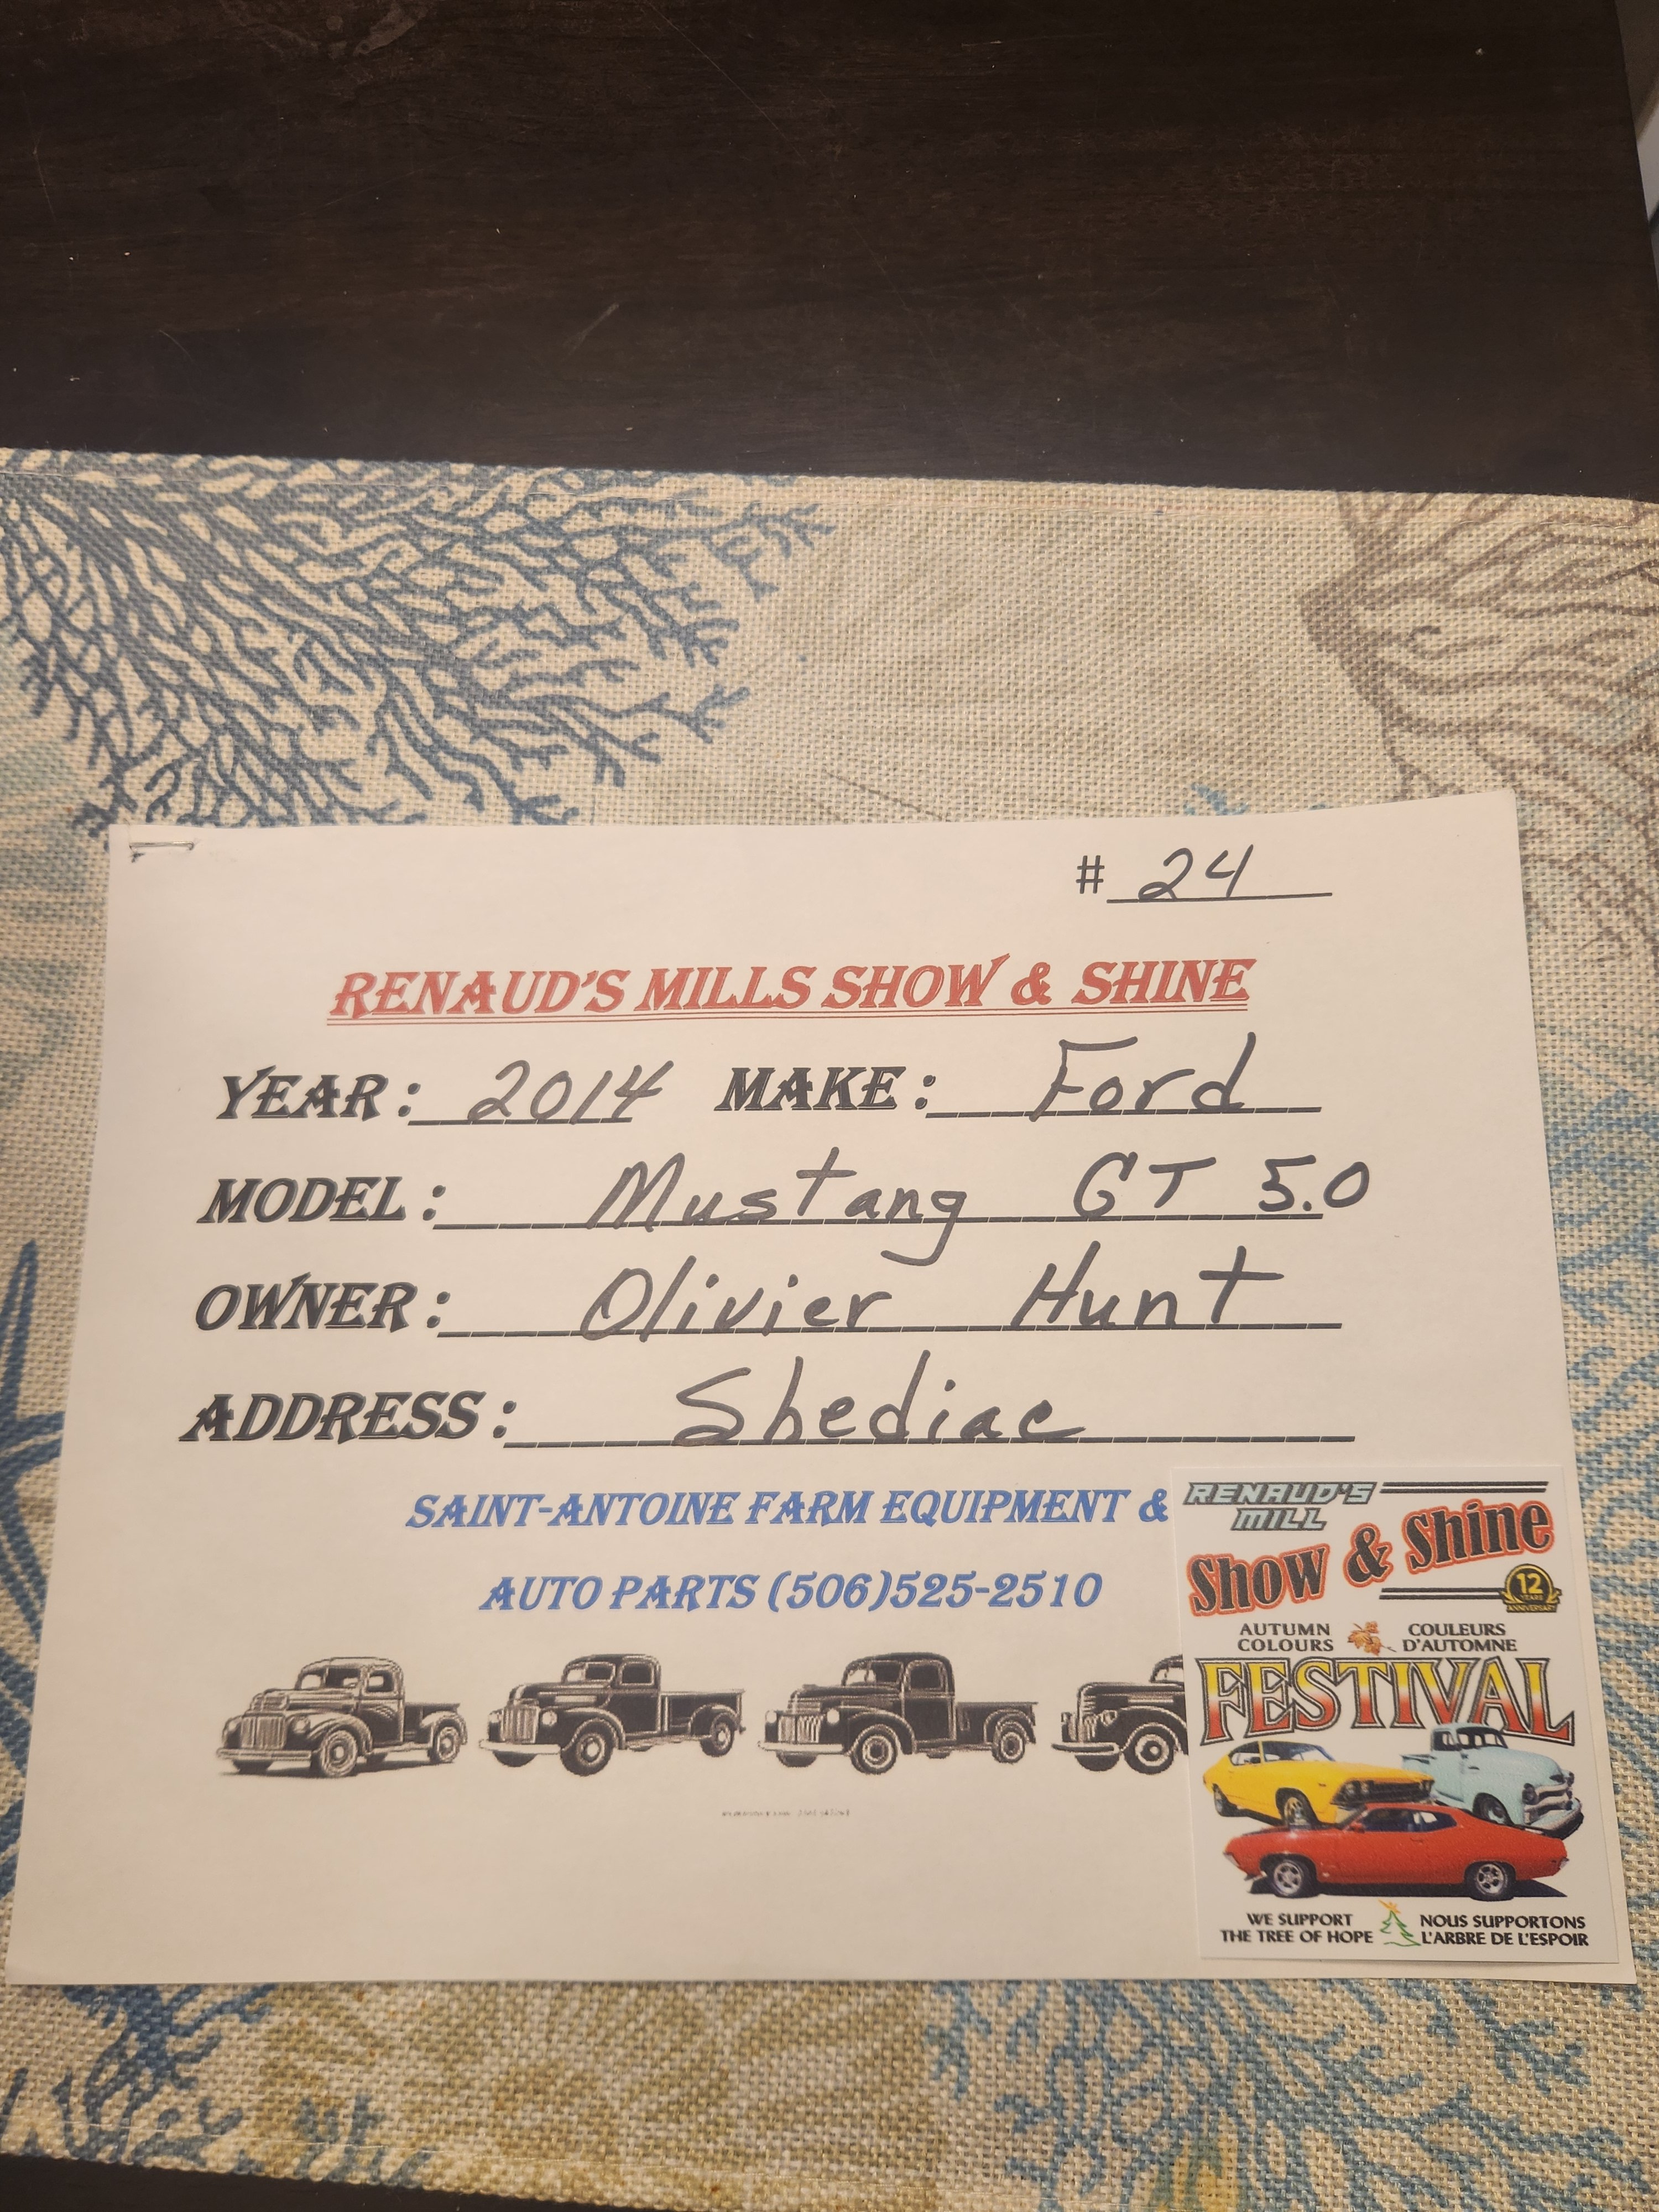 # 24
RENAUD'S MILLS SHOW & SHINE
YEAR: 2014 MAKE: Ford
MODEL: Mustang GT 5.0
OWNER: Olivier Hunt
ADDRESS: Shediac
SAINT-ANTOINE FARM EQUIPMENT &
AUTO PARTS (506)525-2510
RENAUD'S
MILL
Show & Shine
12
YEARS
ANNIVERSARY
AUTUMN COLOURS
COULEURS D'AUTOMNE
FESTIVAL
WE SUPPORT THE TREE OF HOPE
NOUS SUPPORTONS L'ARBRE DE L'ESPOIR